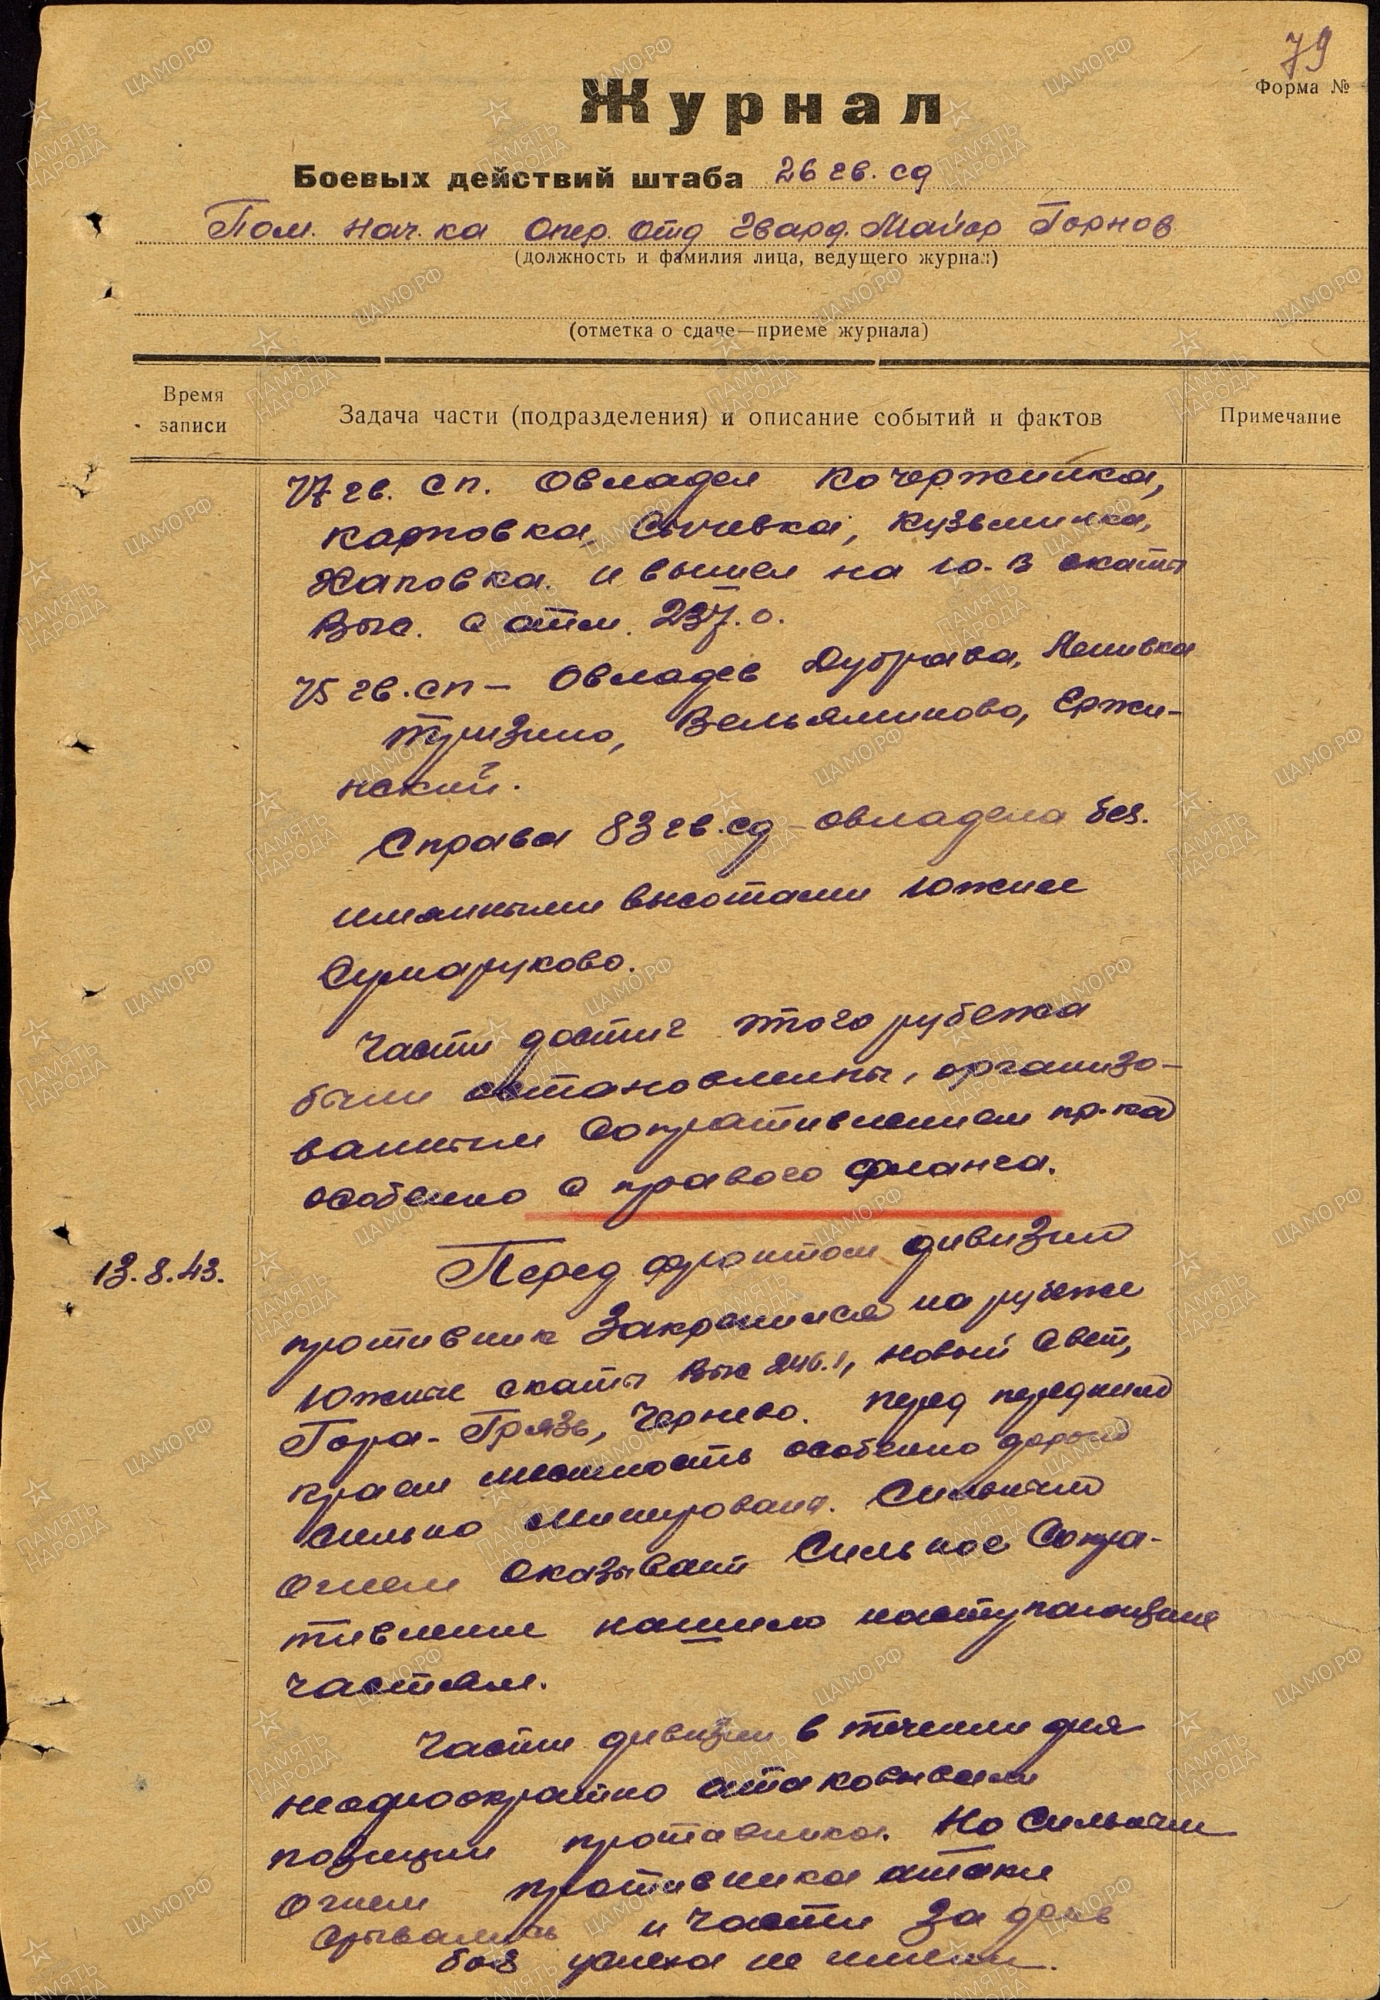 79
Форма №
Журнал
Боевых действий штаба 26 гв. сд
Пом. нач-ка Опер. отд гвард. Майор Горнов
(должность и фамилия лица, ведущего журнал)
(отметка о сдаче—приеме журнала)
Время записи
Задача части (подразделения) и описание событий и фактов
Примечание
77 гв. сп. Овладел Кочержинка,
Карповка, Сычевка, Кузьминка,
Хаповка. и вышел на ю.-в скаты
Выс. с отм. 237.0.
75 гв. сп – Овладев Дубрава, Ленивка
Тризно, Вельяминово, Ержи-
нский.
Справа 83 гв. сд – овладела без.
имянными высотами Южнее
Сумароково.
Части достиг этого рубежа
были остановлены, организо-
ванным сопротивлением пр-ка
особенно с правого фланга.
13.8.43.
Перед фронтом дивизии
противник Закрепился на рубеже
Южные скаты Выс 246.1, Новый Свет,
Гора-Грязь, Чернево. перед передним
краем местность особенно дороги
Сильно минирована. Сильным
Огнем Оказывает Сильное Сопро-
тивление нашим наступающим
частям.
Части дивизии в течении дня
неоднократно атаковывали
позиции противника. Но Сильным
Огнем противника атаки
Срывались и части За день
боя успеха не имели.